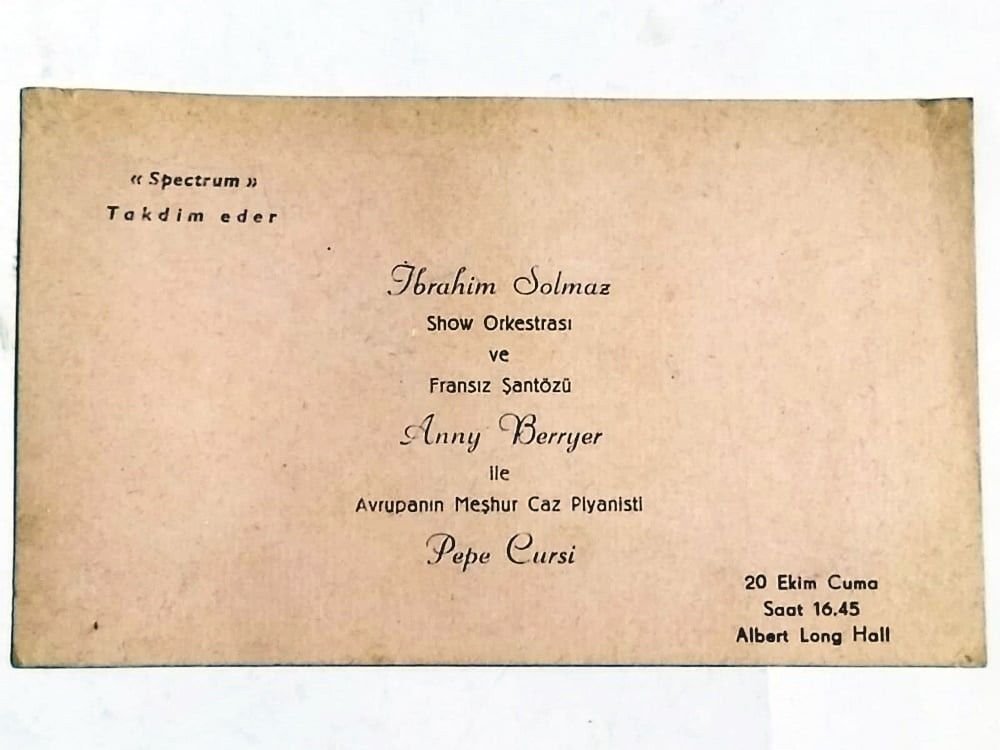 « Spectrum »
Takdim eder
İbrahim Solmaz
Show Orkestrası
ve
Fransız Şantözü
Anny Berryer
ile
Avrupanın Meşhur Caz Piyanisti
Pepe Cursi
20 Ekim Cuma
Saat 16.45
Albert Long Hall